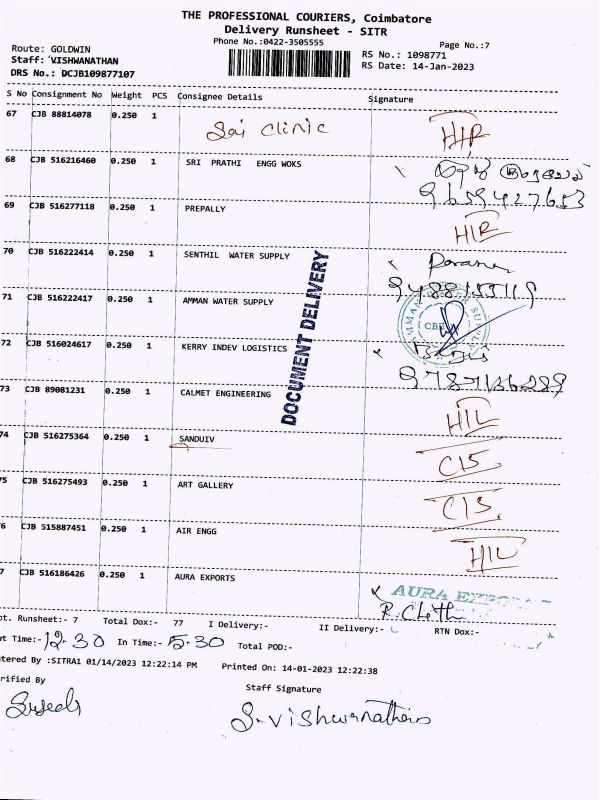 THE PROFESSIONAL COURIERS, Coimbatore
Delivery Runsheet - SITR
Phone No.:0422-3505555
Page No.:7
Route: GOLDWIN
Staff: VISHWANATHAN
DRS No.: DCJB109877107
RS No.: 1098771
RS Date: 14-Jan-2023
S No Consignment No Weight PCS Consignee Details Signature
67 CJB 88814078 0.250 1 Sai Clinic
68 CJB 516216460 0.250 1 SRI PRATHI ENGG WOKS
9659427653
69 CJB 516277118 0.250 1 PREPALLY
70 CJB 516222414 0.250 1 SENTHIL WATER SUPPLY
71 CJB 516222417 0.250 1 AMMAN WATER SUPPLY
72 CJB 516024617 0.250 1 KERRY INDEV LOGISTICS
9787136289
DOCUMENT DELIVERY
73 CJB 89081231 0.250 1 CALMET ENGINEERING HIL
74 CJB 516275364 0.250 1 SANDUIV CIS
75 CJB 516275493 0.250 1 ART GALLERY CIS
6 CJB 515887451 0.250 1 AIR ENGG HIL
7 CJB 516186426 0.250 1 AURA EXPORTS
AURA
ot. Runsheet:- 7 Total Dox:- 77 I Delivery:- II Delivery:- RTN Dox:-
ut Time:- 12.30 In Time:- 5.30 Total POD:-
tered By :SITRA1 01/14/2023 12:22:14 PM Printed On: 14-01-2023 12:22:38
rified By
Staff Signature
S. Vishwanathan